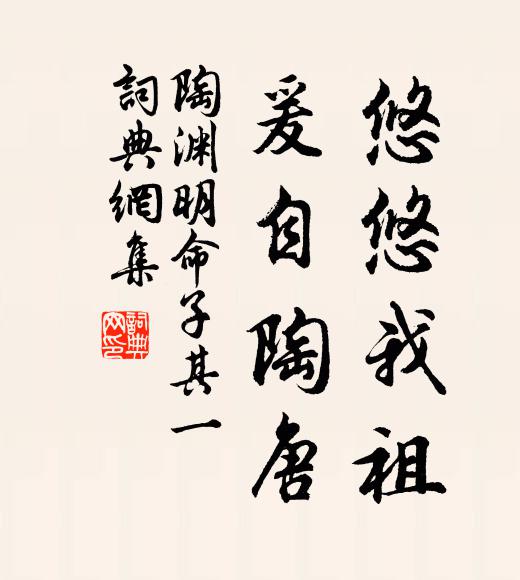 悠悠我祖
爰自陶唐
陶渊明命子其一
詞典網集
詞典网印